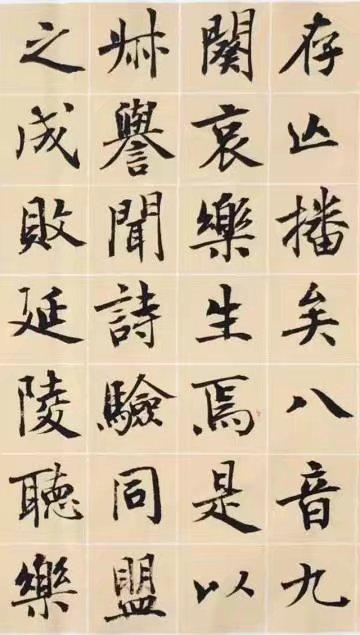 存亾播矣八音九
闋哀樂生焉是以
叔譽聞詩驗同盟
之成敗延陵聽樂